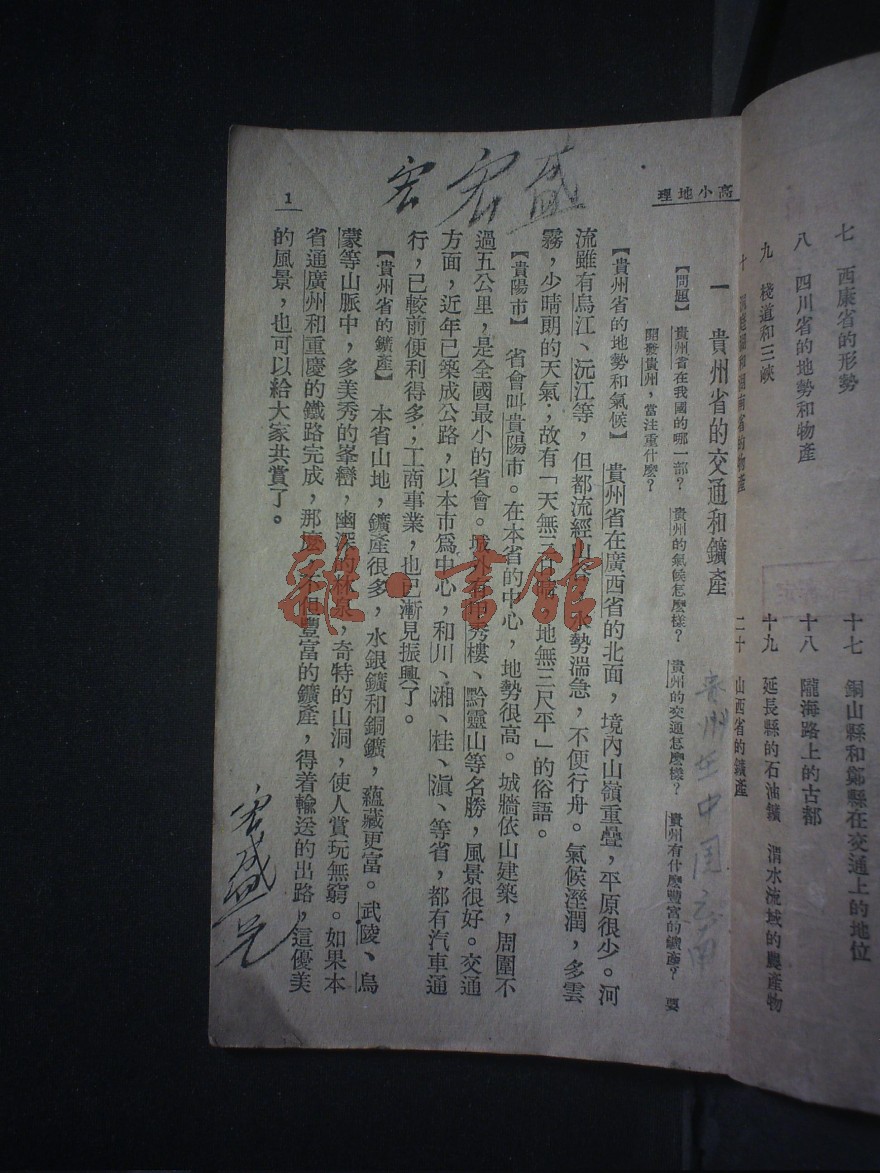 七　西康省的形勢
八　四川省的地勢和物產
九　棧道和三峽
十七　銅山縣和鄭縣在交通上的地位
十八　隴海路上的古都
十九　延長縣的石油鑛　渭水流域的農產物
二十　山西省的鑛產
高小地理
1
宏　宏盛
一　貴州省的交通和鑛產
【問題】　貴州省在我國的哪一部？　貴州的氣候怎麼樣？　貴州的交通怎麼樣？　貴州有什麼豐富的鑛產？　要
開發貴州，當注重什麼？
【貴州省的地勢和氣候】　貴州省在廣西省的北面，境內山嶺重疊，平原很少。河
流雖有烏江、沅江等，但都流經山谷，水勢湍急，不便行舟。氣候溼潤，多雲
霧，少晴朗的天氣；故有「天無三日晴，地無三尺平」的俗語。
【貴陽市】　省會叫貴陽市。在本省的中心，地勢很高。城牆依山建築，周圍不
過五公里，是全國最小的省會。城外有甲秀樓、黔靈山等名勝，風景很好。交通
方面，近年已築成公路，以本市爲中心，和川、湘、桂、滇、等省，都有汽車通
行，已較前便利得多；工商事業，也已漸見振興了。
【貴州省的鑛產】　本省山地，鑛產很多，水銀鑛和銅鑛，蘊藏更富。武陵、烏
蒙等山脈中，多美秀的峯巒，幽深的林泉，奇特的山洞，使人賞玩無窮。如果本
省通廣州和重慶的鐵路完成，那麼，不但豐富的鑛產，得着輸送的出路，這優美
的風景，也可以給大家共賞了。
雜·書館